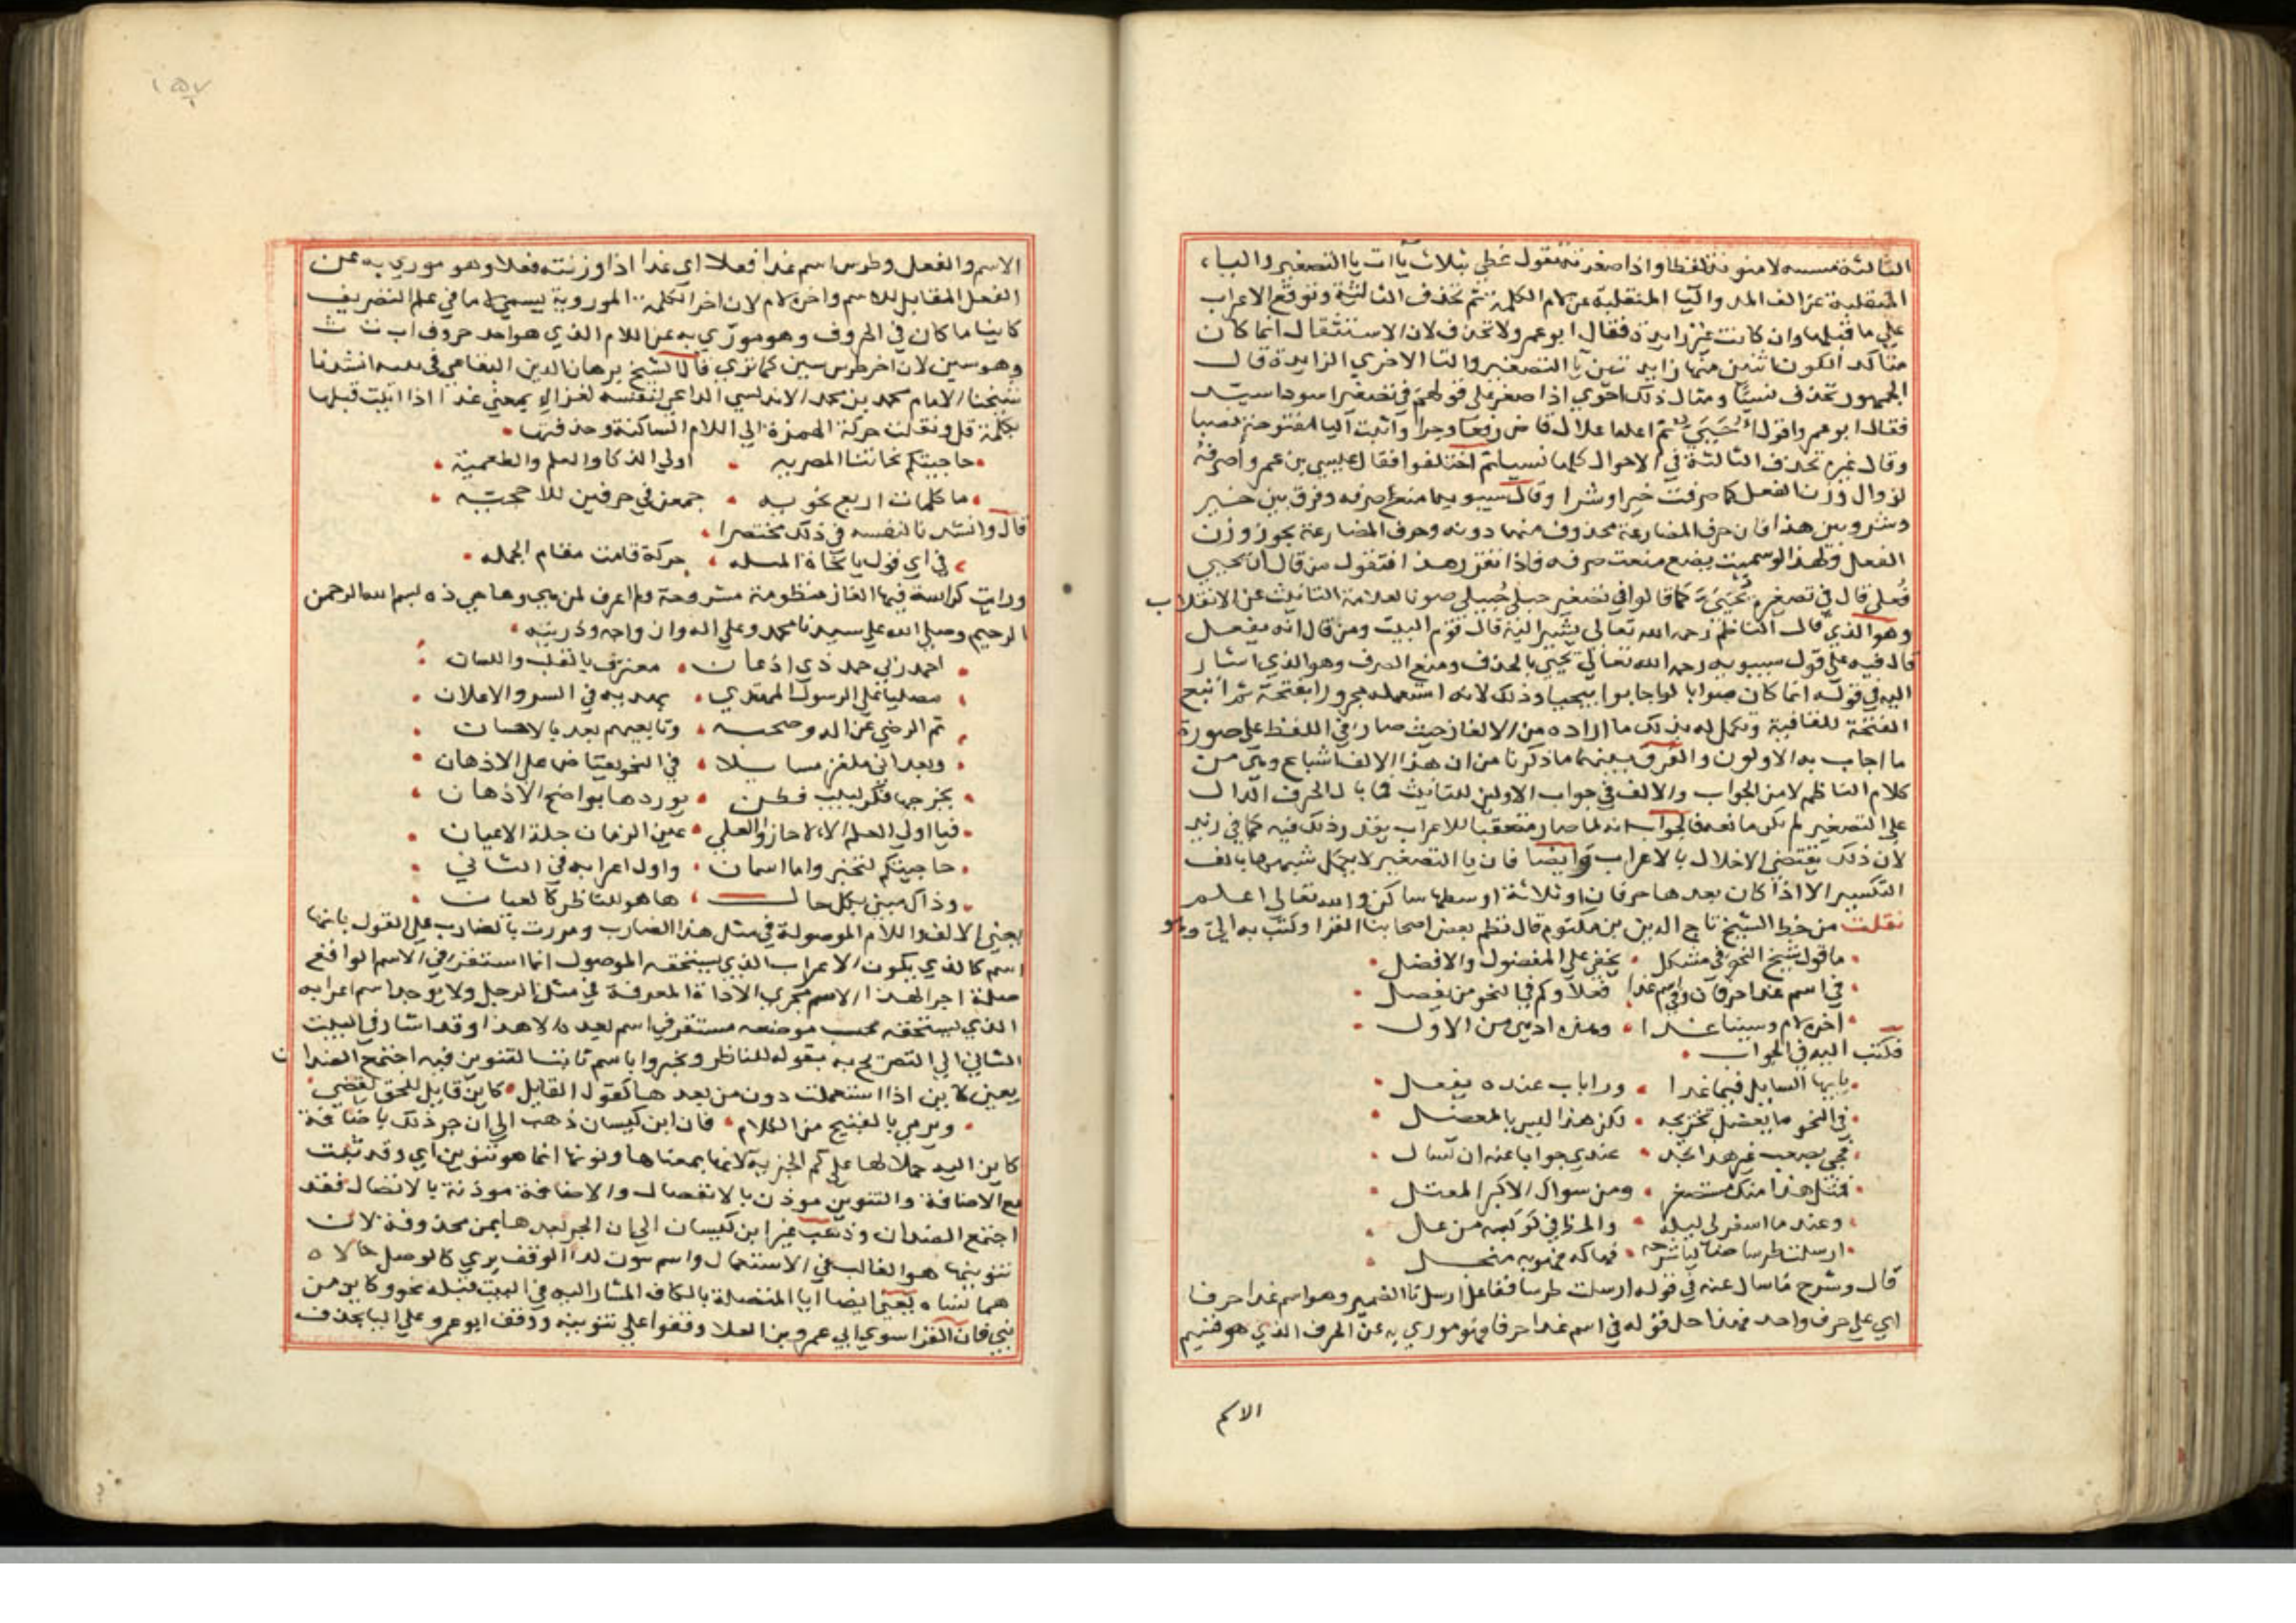 الثالثة منسيه لا منونة لفظا واذا صغرته تقول عطي بثلاث ياات يا التصغير والياء
المنقلبة عن الف المد واليا المنقلبة عن لام الكلمة ثم تحذف الثالثة وتوقع الاعراب
علي ما قبلها وان كانت غير زايدة فقال ابو عمرو لا تحذف لان الاستثقال انما كان
متاكد الكون اثنين منها زايدتين يا التصغير واليا الاخري الزايدة قال
الجمهور تحذف نسيًا ومثال ذلك احوي اذا صغر علي قولهم في تصغير اسود اسيد
فقال ابو عمرو اقول احيي ثم اعله اعلال قاض رفعا وجرا واثبت اليا مفتوحة نصبا
وقال غيره تحذف الثالثة في الاحوال كلها نسيا ثم اختلفوا فقال عيسي بن عمر واصرفه
لزوال وزن الفعل كما صرفت خيرا وشرا وقال سيبويه امنع صرفه وفرق بين خير
وشر وبين هذا فان حرف المضارعة محذوف منهما دونه وحرف المضارعة يحرز وزن
الفعل ولهذا لو سميت بيضع منعت صرفه فاذا تقرر هذا فتقول من قال ان يحيي
فعلي قال في تصغيره يحيي كما قالوا في تصغير حبلي حبيلي صونا لعلامة التانيث عن الانقلاب
وهو الذي قال الناظم رحمه الله تعالي يشير اليه قال قوم البيت ومن قال انه يفعل
قال فيه علي قول سيبويه رحمه الله تعالي يحيي بالحذف ومنع الصرف وهو الذي اشار
اليه في قوله انما كان صوابا لو اجابوا بيحيا وذلك لانه استعمله مجرورا بفتحة ثم اتبع
الفتحة للقافية وتكمل له بذلك ما اراده من الالغاز حيث صار في اللفظ علي صورة
ما اجاب به الاولون والفرق بينهما ما ذكرنا من ان هذه الالف اشباع وهي من
كلام الناظم لا من الجواب والالف في جواب الاولين للتانيث فما بال الحرف الدال
علي التصغير لم يكن ما بعده فالجواب انه لما صار متعقبا للاعراب تعذر ذلك فيه كما في زبيد
لان ذلك يقتضي الاخلال بالاعراب وايضا فان يا التصغير لا يكمل شبهها بالف
التكسير الا اذا كان بعدها حرفان او ثلاثة اوسطها ساكن والله تعالي اعلم
نقلت من خط الشيخ تاج الدين بن مكتوم قال نظم بعض اصحابنا لغزا وكتب به الي وهو
ما قول شيخ النحو في مشكل يخفي علي المفضول والافضل
في اسم غدا حرفا وفي اسم غدا فعلا وكم في النحو من يفصل
اخره لام وسينا غدا
فكتب اليه في الجواب
يا ايها السايل فيما غدا وراياب عنده يفعل
في النحو ما يعضل تخريجه لكن هذا ليس بالمعضل
عندي جوابا عنه ان تسال
مثل هذا منك مستصغر ومن سوال الاكبر المعتل
وعند ما اسفر لي ليله
ارسلت طرسا
قال وشرح ما سال عنه في قوله ارسلت طرسا ففاعل ارسل تا الضمير وهو اسم غدا حرفا
اي علي حرف واحد فهذا حل قوله في اسم غدا حرفا وهو موري به عن الحرف الذي هو قسيم
الاسم والفعل وطرس اسم غدا فعلا اي غدا اذا وزنته فعلا وهو موري به عن
الفعل المقابل للاسم واخره لام لان اخر الكلمة الموروية يسمي لاما في علم التصريف
كاينا ما كان في الحروف وهو موري به عن اللام الذي هو احد حروف ا ب ت ث
وهو سين لان اخر طرس سين كما تري قال الشيخ برهان الدين البقاعي في انشدنا
شيخنا الامام محمد بن محمد الاندلسي الراعي لنفسه لغزا في ا بمعني عد اذا ابنيت قبلها
بكلمة قل ونقلت حركة الهمزة الي اللام الساكنة وحذفتها
حاجيتكم نحاتنا المصريه اولي الذكا والعلم والطعمية
ما كلمات اربع نحويه جمعن في حرفين للاحجيه
قال وانشدنا لنفسه في ذلك مختصرا
في اي قول يا نحاة المله حركة قامت مقام الجمله
ورايت كراسة فيها الغاز منظومة مشروحة ولم اعرف لمن هي وها هي ذه بسم الله الرحمن
الرحيم وصلي الله علي سيدنا محمد وعلي اله وازواجه وذريته
احمد ربي حمد ذي اذعان معترف بالقلب واللسان
مصليا علي الرسول المهتدي بهديه في السر والاعلان
ثم الرضي عن اله وصحبه وتابعيهم بعد بالاحسان
وبعد اني ملغز مسايلا في النحو تعتاض علي الاذهان
يخرجها فكر لبيب فطن يوردها بواضح الاذهان
فيا اولي العلم الالا حازوا العلي عين الزمان جلة الاعيان
حاجيتكم لتخبروا ما اسمان واول اعرابه في الثاني
وذاك مبني بكل حال ها هو للناظر كالعيان
يعني الالف واللام الموصولة في مثل هذا الضارب ومررت بالضارب علي القول بانها
اسم كالذي يكون الاعراب الذي يستحقه الموصول انما استقر في الاسم الواقع
صلة اجرا لهذا الاسم مجري الاداة المعرفة في مثل الرجل ولا يوجد اسم اعرابه
الذي يستحقه بحسب موضعه مستقر في اسم بعده الا هذا وقد اشار في البيت
الثاني الي التصريح به بقوله للناظر وتخبروا باسم ثابت التنوين فيه اجتمع الضدان
يعني كاين اذا استعملت دون من بعدها كقول القايل كاين قايل للحق يقضي
ويرمي بالقبيح من الكلام فان ابن كيسان ذهب الي ان جر ذلك باضافة
كاين اليه حملا لها علي كم الخبرية لانها بمعناها ونونها انما هو تنوين اي وقد ثبت
مع الاضافة والتنوين موذن بالانفصال والاضافة موذنة بالاتصال فقد
اجتمع الضدان وذهب غير ابن كيسان الي ان الجر بعدها بمن محذوفة لان
تنوينها هو الغالب في الاستعمال واسم سوت لدا الوقف يري كالوصل حالاه
هما سياه يعني ايضا ايا المتصلة بالكاف المشار اليه في البيت قبله نحو وكاين من
نبي فان القرا سوي ابي عمرو بن العلا وقفوا علي تنوينه ووقف ابو عمرو علي اليا بحذف
الاسم